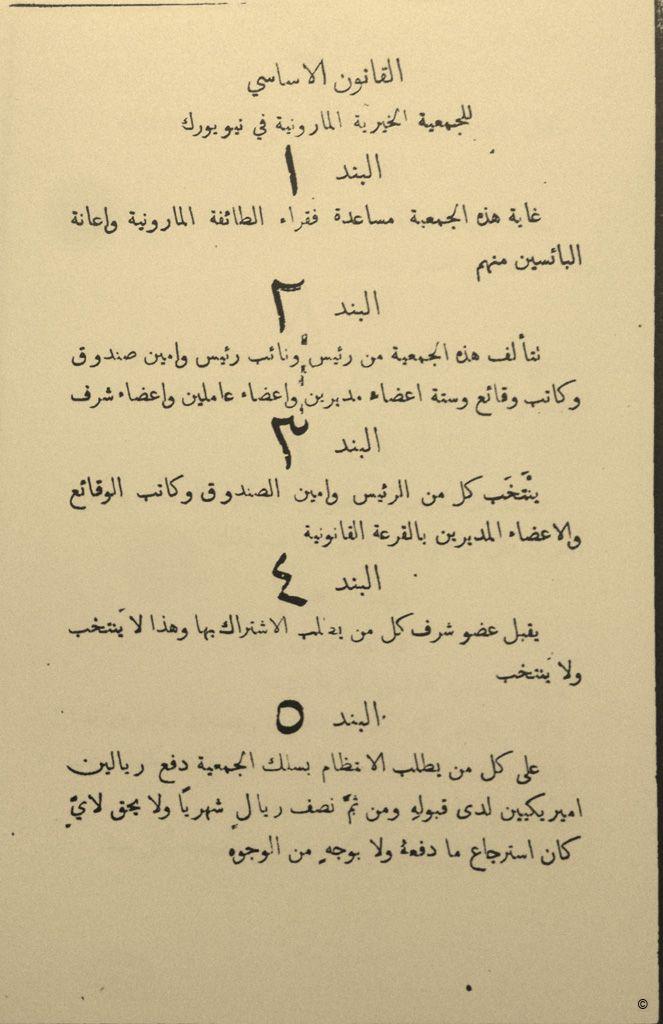 القانون الاساسي
للجمعية الخيرية المارونية في نيويورك
البند ١
غاية هذه الجمعية مساعدة فقراء الطائفة المارونية واعانة
البائسين منهم
البند ٢
تتألف هذه الجمعية من رئيس ونائب رئيس وامين صندوق
وكاتب وقائع وستة اعضاء مديرين واعضاء عاملين واعضاء شرف
البند ٣
ينْتَخَب كل من الرئيس وامين الصندوق وكاتب الوقائع
والاعضاء المديرين بالقرعة القانونية
البند ٤
يقبل عضو شرف كل من يطلب الاشتراك بها وهذا لا يَنتخب
ولا يُنتخب
البند ٥
على كل من يطلب الانتظام بسلك الجمعية دفع ريالين
اميريكيين لدى قبولهِ ومن ثمَّ نصف ريالٍ شهريًا ولا يحق لايٍّ
كان استرجاع ما دفعهُ ولا بوجهٍ من الوجوه
©